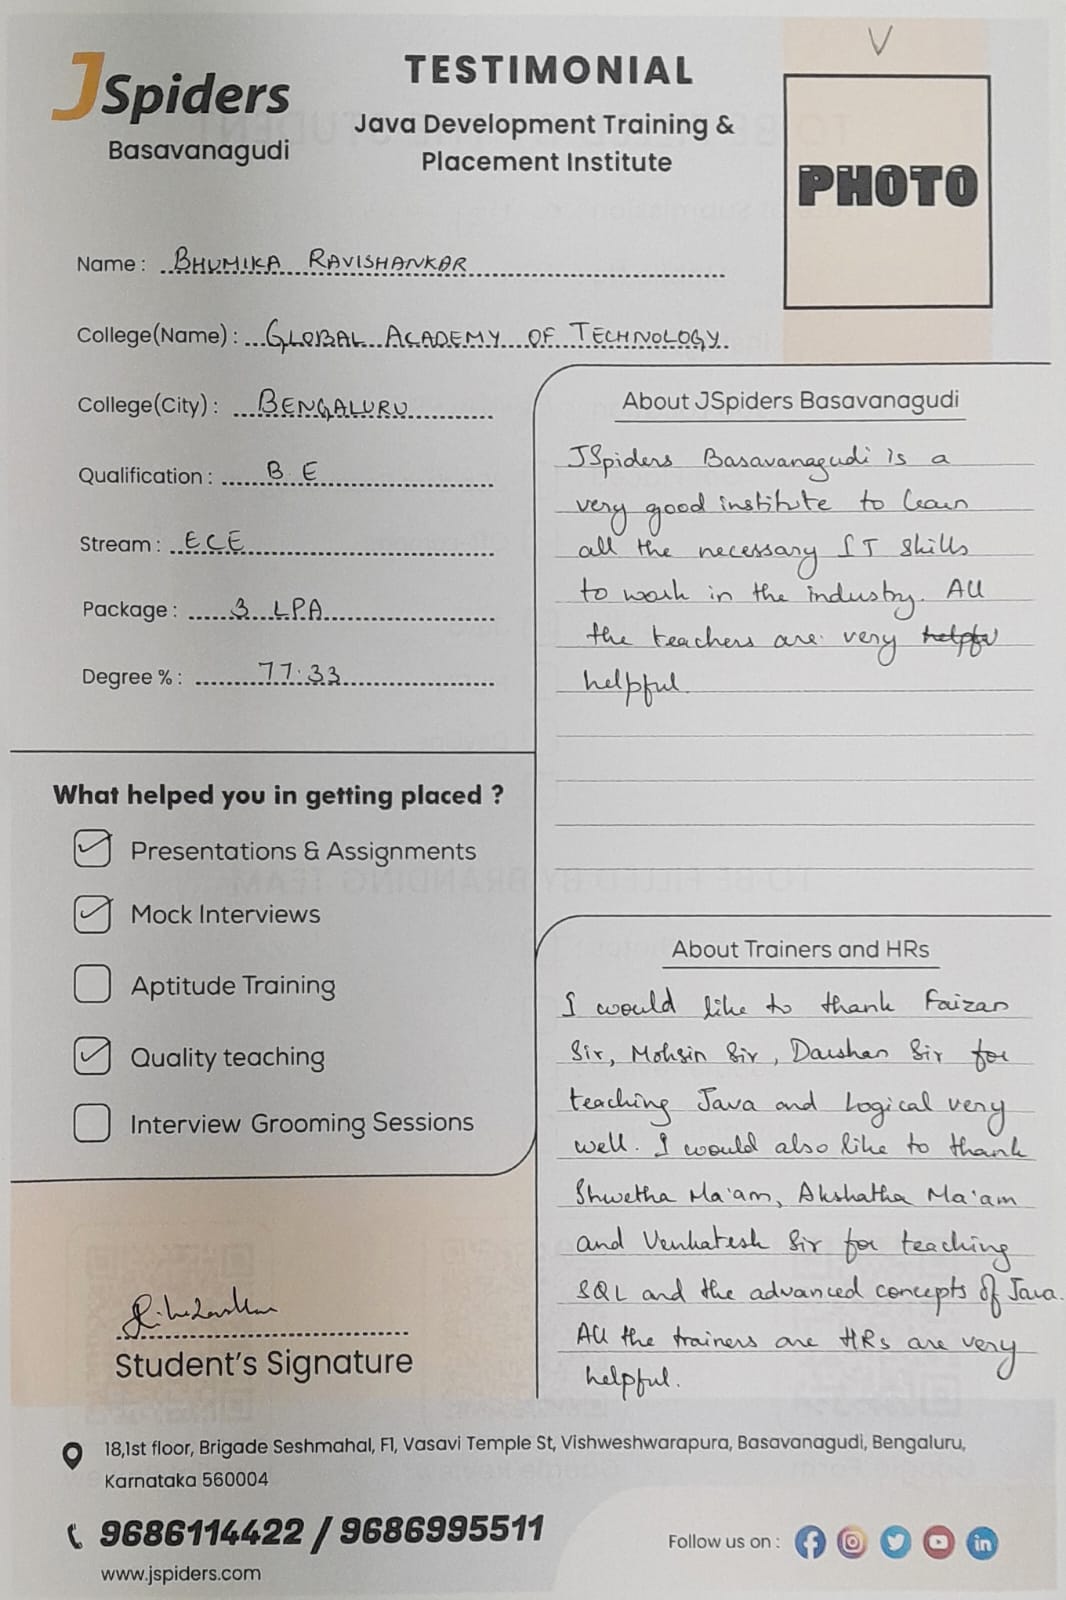 JSpiders
Basavanagudi
TESTIMONIAL
Java Development Training &
Placement Institute
PHOTO
Name : BHUMIKA RAVISHANKAR
College(Name) : GLOBAL ACADEMY OF TECHNOLOGY
College(City) : BENGALURU
Qualification : B E
Stream : ECE
Package : 3 LPA
Degree % : 77.33
What helped you in getting placed ?
Presentations & Assignments
Mock Interviews
Aptitude Training
Quality teaching
Interview Grooming Sessions
Student's Signature
About JSpiders Basavanagudi
JSpiders Basavanagudi is a
very good institute to learn
all the necessary IT skills
to work in the industry. All
the teachers are very helpfu
helpful.
About Trainers and HRs
I would like to thank Faizan
Sir, Mohsin Sir, Darshan Sir for
teaching Java and Logical very
well. I would also like to thank
Shwetha Ma'am, Akshatha Ma'am
and Venkatesh Sir for teaching
SQL and the advanced concepts of Java.
All the trainers are HRs are very
helpful.
18,1st floor, Brigade Seshmahal, F1, Vasavi Temple St, Vishweshwarapura, Basavanagudi, Bengaluru,
Karnataka 560004
9686114422 / 9686995511
www.jspiders.com
Follow us on :